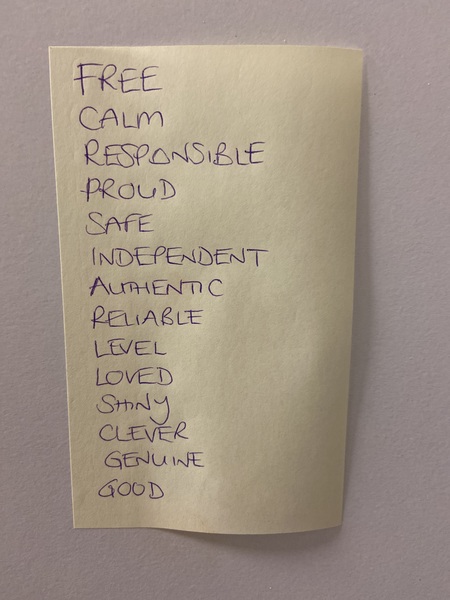 FREE
CALM
RESPONSIBLE
PROUD
SAFE
INDEPENDENT
AUTHENTIC
RELIABLE
LEVEL
LOVED
SHINY
CLEVER
GENUINE
GOOD